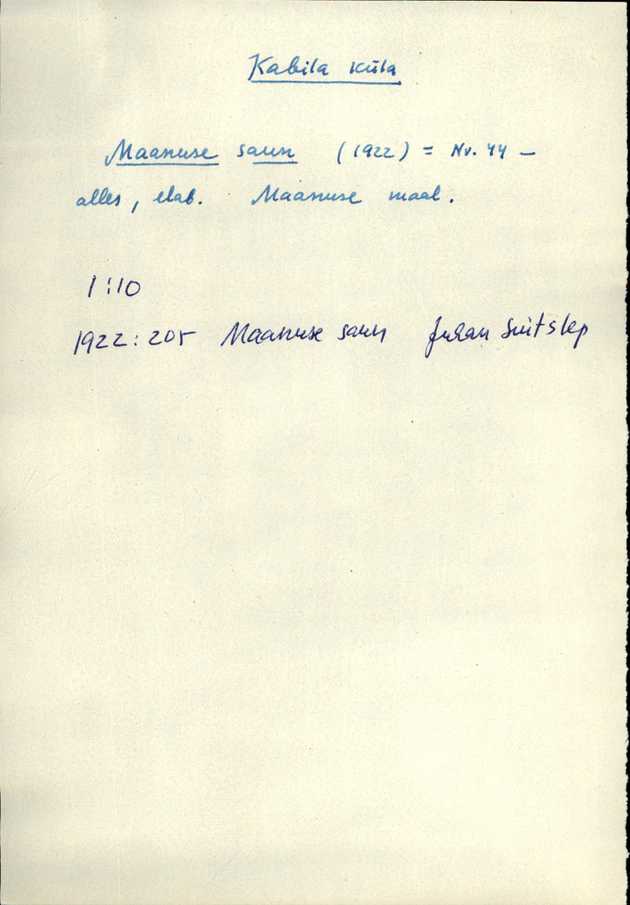 Kabila küla
Maanuse saun (1922) = Nr. 44 –
alles, elab. Maanuse maal.
1:10
1922:205 Maanuse saun Juhan Suitslep